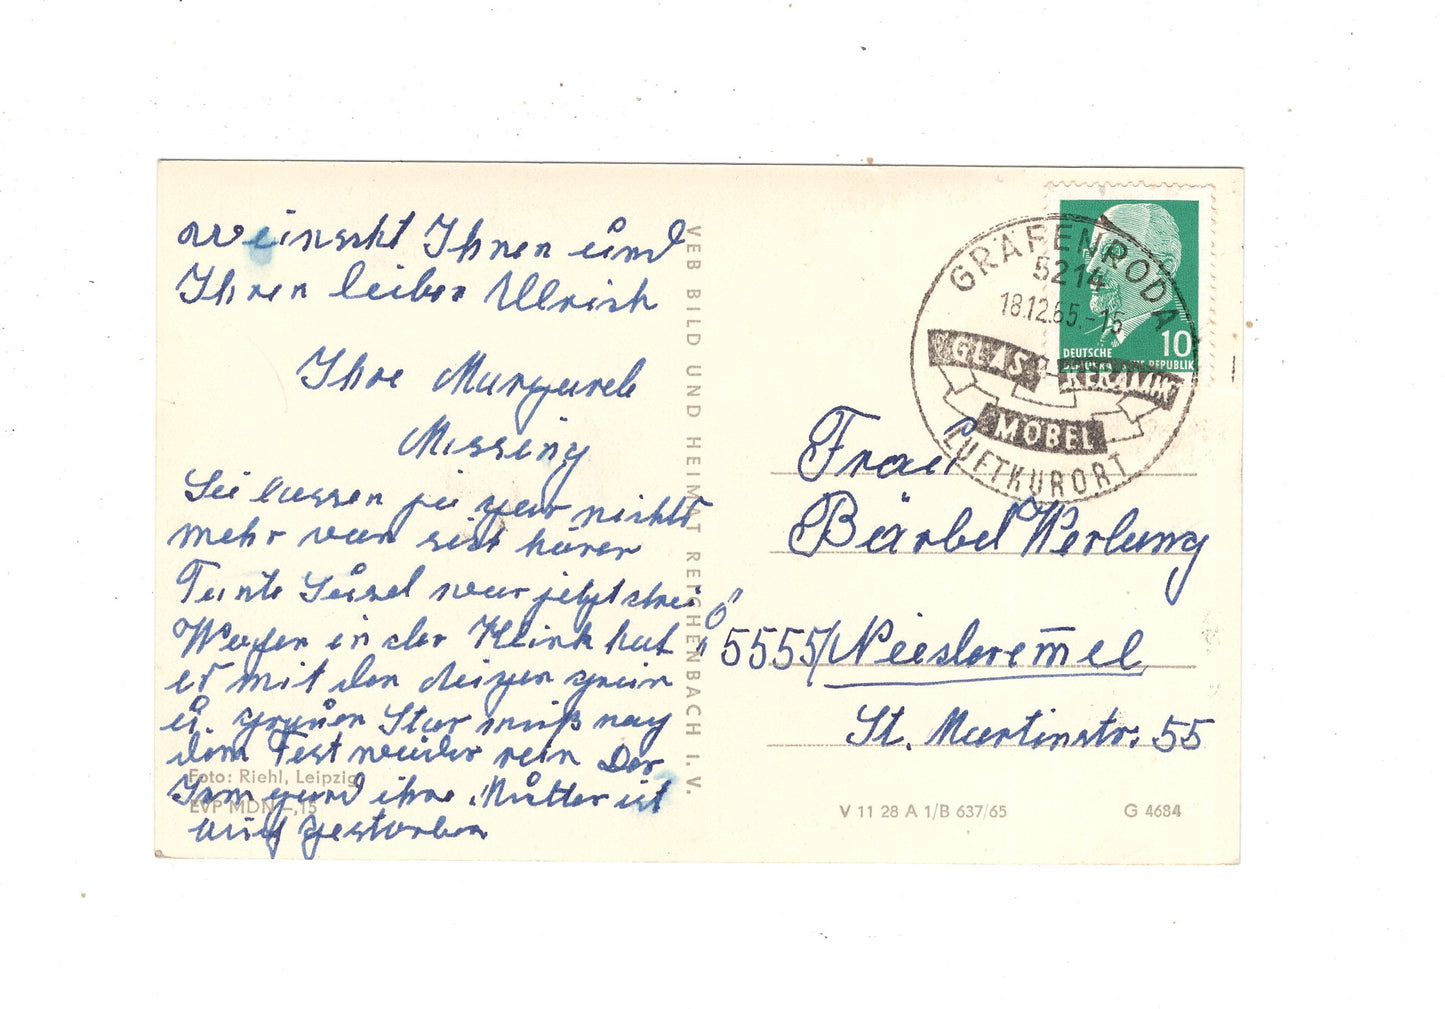 wünscht Ihnen und
Ihren lieben Ulrich
Ihre Margareth
Missing
Sie lassen ja gar nichts
mehr von sich hören
Tante war jetzt drei
in der Klinik hat
er mit den Augen
u. grünen Star muß nach
dem Fest wieder rein Der
Irmgard ihre Mutter ist
auch gestorben
Foto: Riehl, Leipzig
EVP MDN -,15
VEB BILD UND HEIMAT REICHENBACH I. V.
GRÄFENRODA
5214
18.12.65.-15
GLAS - KERAMIK
MÖBEL
LUFTKURORT
10
DEUTSCHE
DEMOKRATISCHE REPUBLIK
Frau
Bärbel Werlung
5555/
St. Martinstr. 55
V 11 28 A 1/B 637/65
G 4684